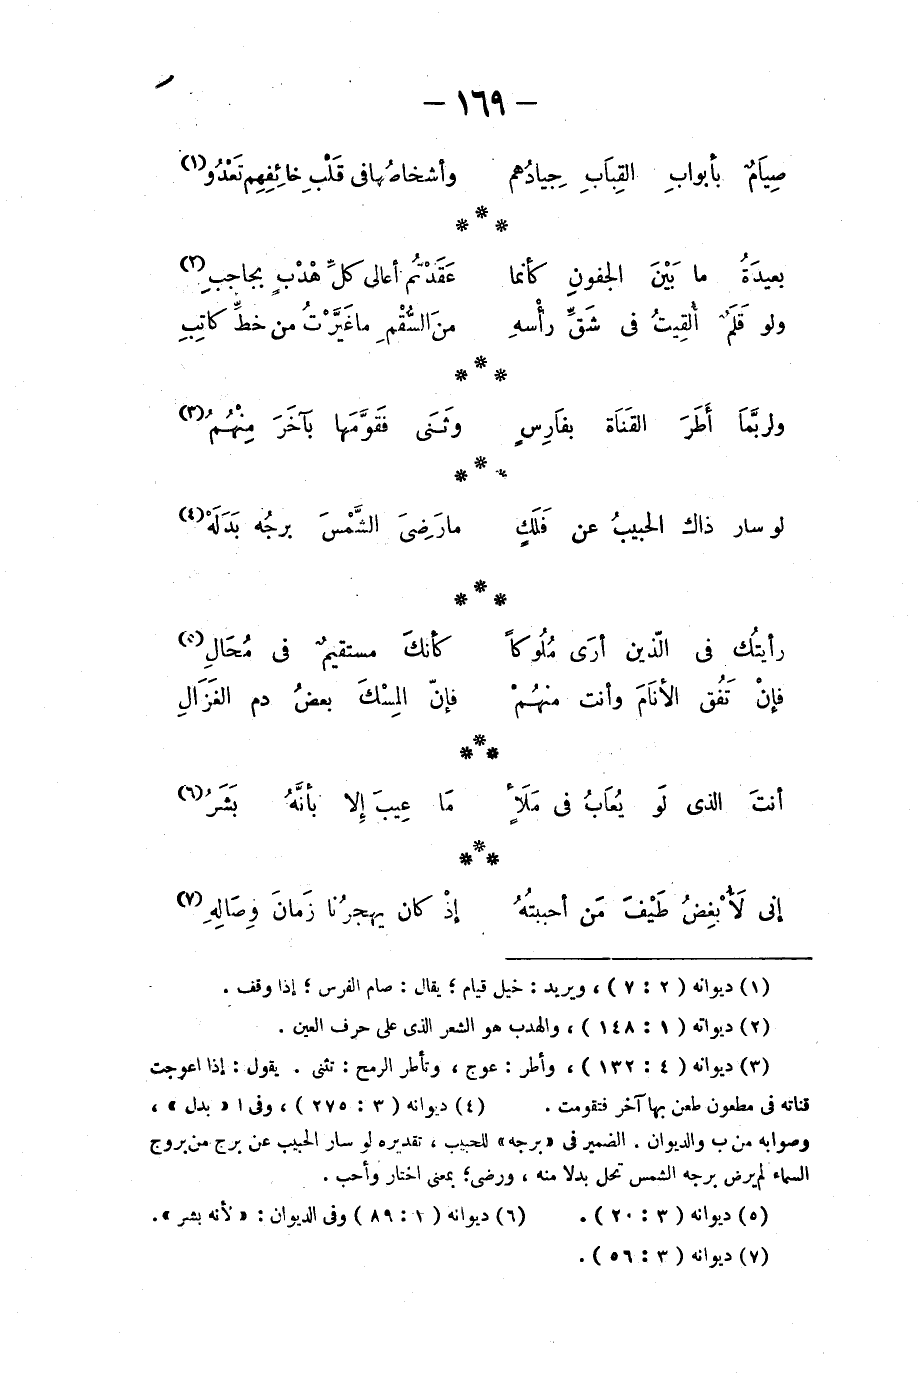 — ١٦٩ —
صِيَامٌ بأبوابِ القِبَابِ جِيادُهم وأشخاصُها فى قَلْبِ خائِفِهِم تَعْدُو(١)
***
بعيدَةُ ما بَيْنَ الجفونِ كأنما عَقَدْتُم أعالى كلِّ هُدْبٍ بحاجبِ(٢)
ولو قَلَمٌ أُلقِيتُ فى شَقِّ رأْسهِ منَ السُّقْمِ ما غَيَّرْتُ من خطِّ كاتِبِ
***
ولربَّمَا أَطَرَ القَنَاة بفَارِسٍ وثَنَى فَقَوَّمَها بآخَرَ مِنْهُمُ(٣)
***
لو سار ذاك الحبيبُ عن فَلَكٍ ما رَضِىَ الشَّمْسَ برجُه بَدَلَهْ(٤)
***
رأيتُك فى الّذين أرَى مُلُوكاً كأنكَ مستقيمٌ فى مُحَالِ(٥)
فإنْ تَفُق الأنَامَ وأنت منهُمْ فإنّ المِسْكَ بعضُ دم الغَزَالِ
***
أنتَ الذى لَو يُعَابُ فى مَلَأٍ مَا عِيبَ إلا بأنَّهُ بَشَرُ(٦)
***
إنى لَأُبْغِضُ طَيْفَ مَن أحببتُهُ إذْ كان يهجرُنا زَمانَ وِصَالِهِ(٧)
(١) ديوانه ( ٢ : ٧ ) ، ويريد : خيل قيام ؛ يقال : صام الفرس ؛ إذا وقف .
(٢) ديوانه ( ١ : ١٤٨ ) ، والهدب هو الشعر الذى على حرف العين .
(٣) ديوانه ( ٤ : ١٣٢ ) ، وأطر : عوج ، وتأطر الرمح : تثنى . يقول : إذا اعوجت
قناته فى مطعون طعن بها آخر فتقومت . (٤) ديوانه ( ٣ : ٢٧٥ ) ، وفى ا « بدل » ،
وصوابه من ب والديوان . الضمير فى «برجه» للحبيب ، تقديره لو سار الحبيب عن برج من بروج
السماء لم يرض برجه الشمس تحل بدلا منه ، ورضى؛ بمعنى اختار وأحب .
(٥) ديوانه ( ٣ : ٢٠ ) . (٦) ديوانه ( ١ : ٨٩ ) وفى الديوان : « لأنه بشر » .
(٧) ديوانه ( ٣ : ٥٦ ) .